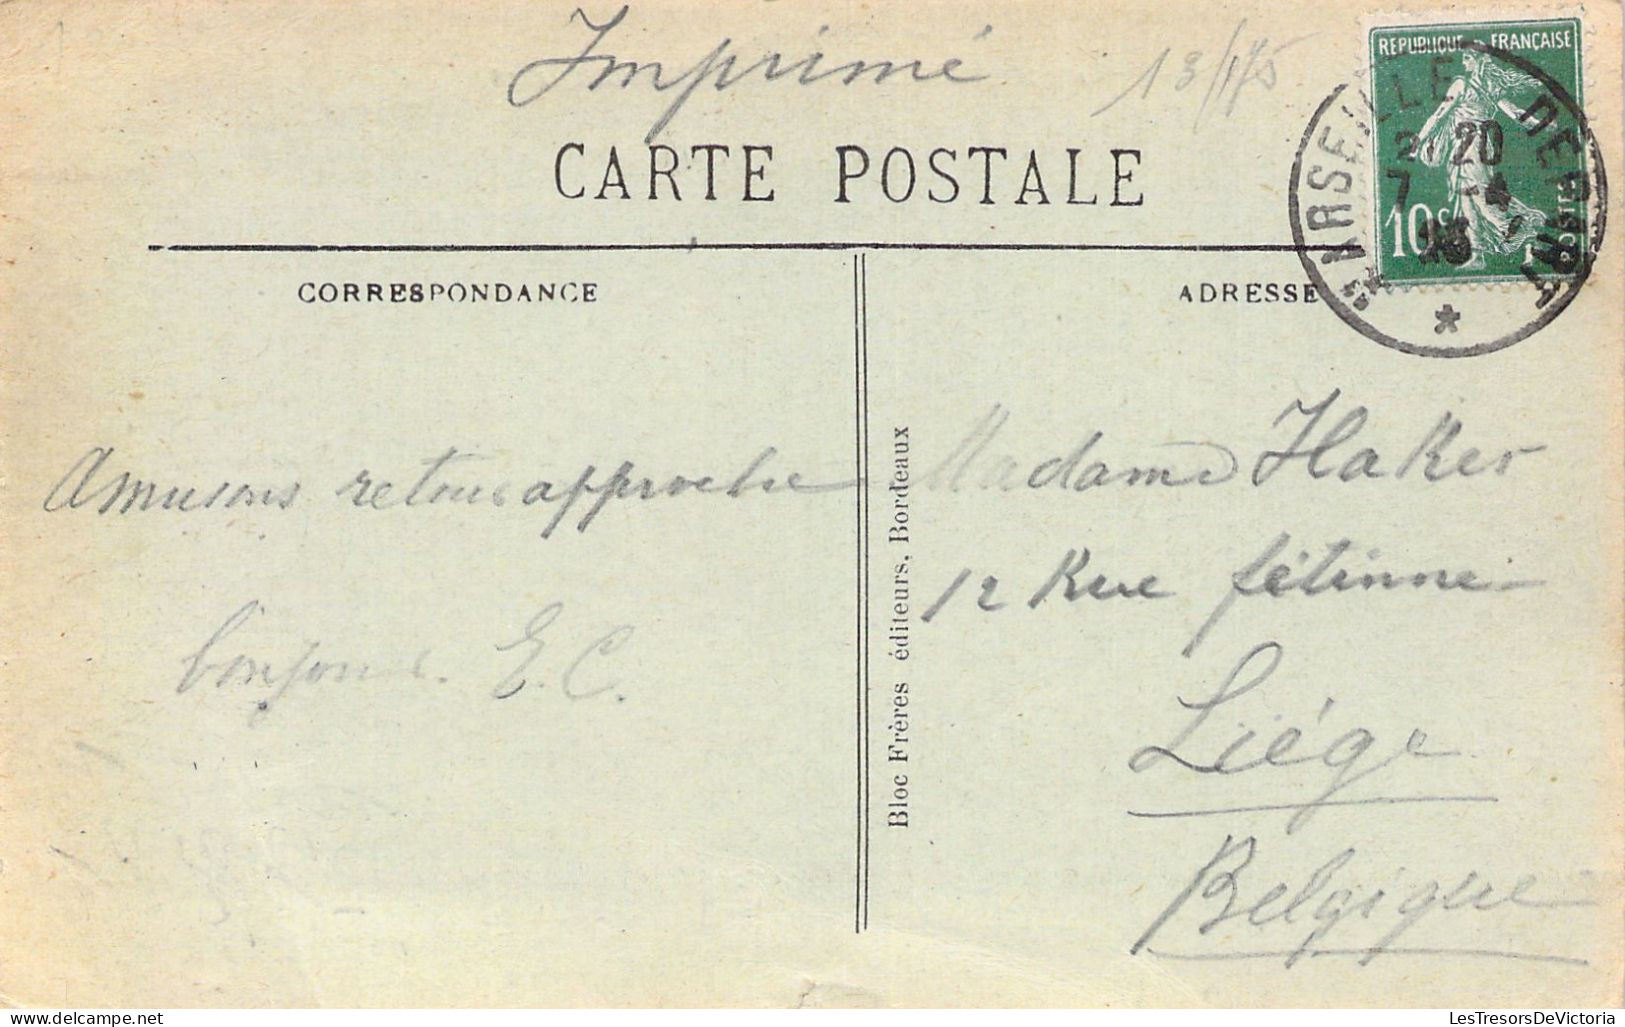 Imprimé
13/175
REPUBLIQUE FRANÇAISE
10 c
POSTES
MARSEILLE DEPART
20
7 - 4
CARTE POSTALE
CORRESPONDANCE
ADRESSE
Amusons retour approche
bonjour. E. C.
Bloc Frères éditeurs, Bordeaux
Madame Haker
12 Rue fétinne
Liége
Belgique
www.delcampe.net
LesTresorsDeVictoria